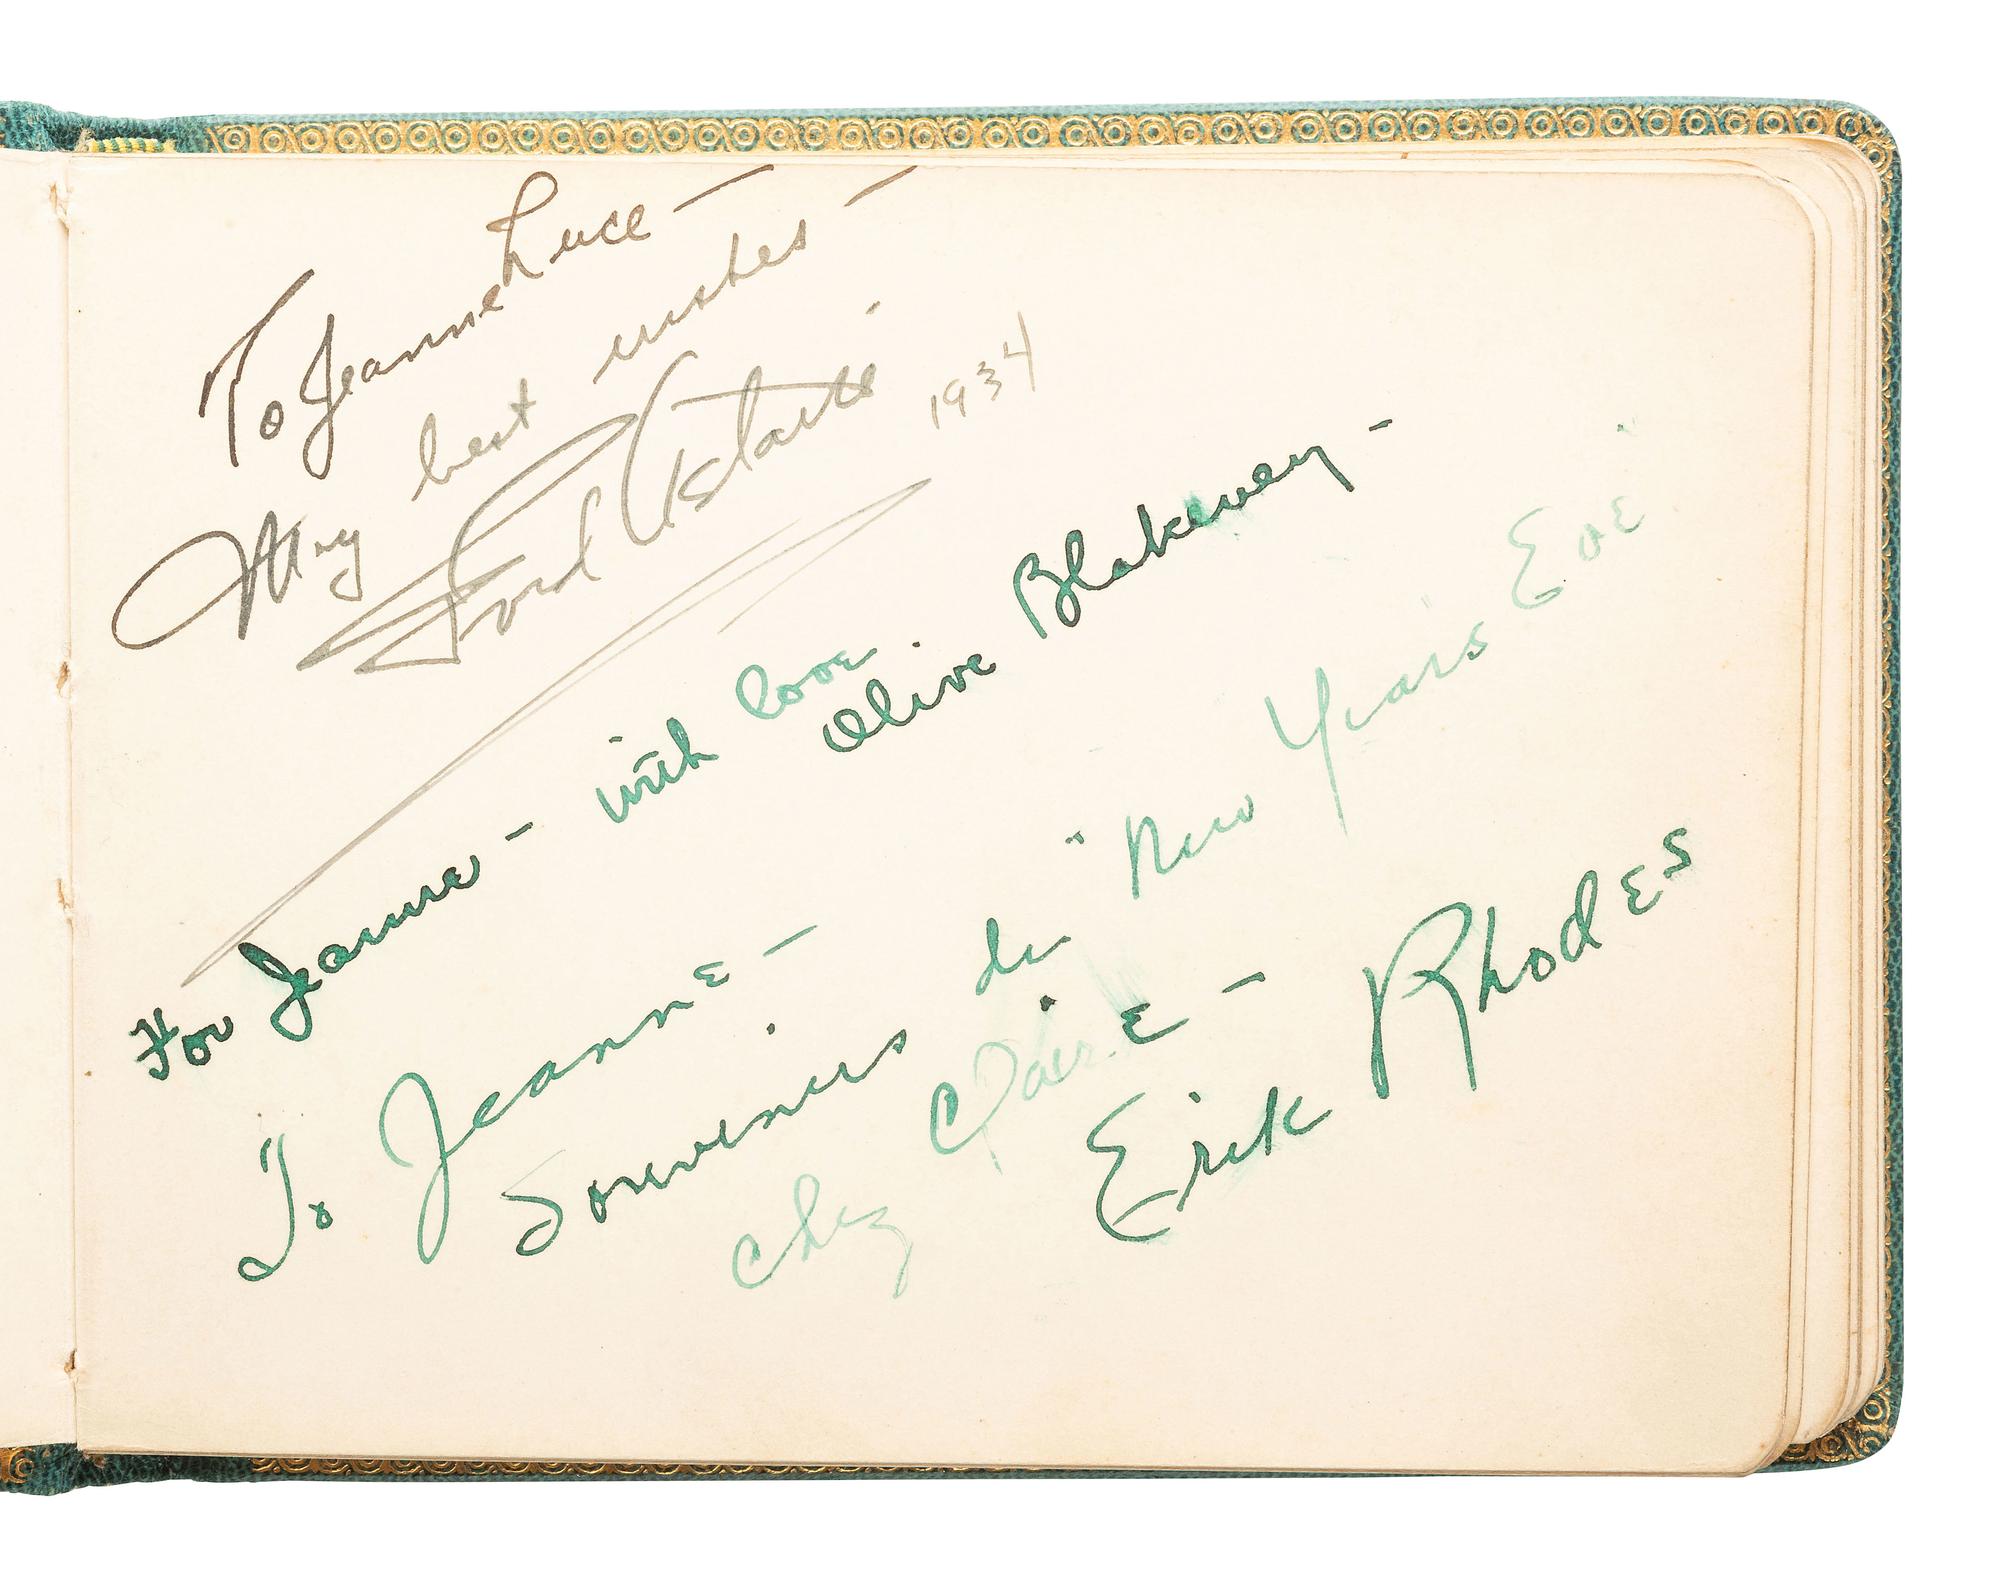 To Jeanne Luce —
My best wishes —
Fred Astaire 1934
For Jeanne — with love
Olive Blakeney —
To Jeanne —
Souvenirs du "New Years Eve"
chez Claire —
Erik Rhodes